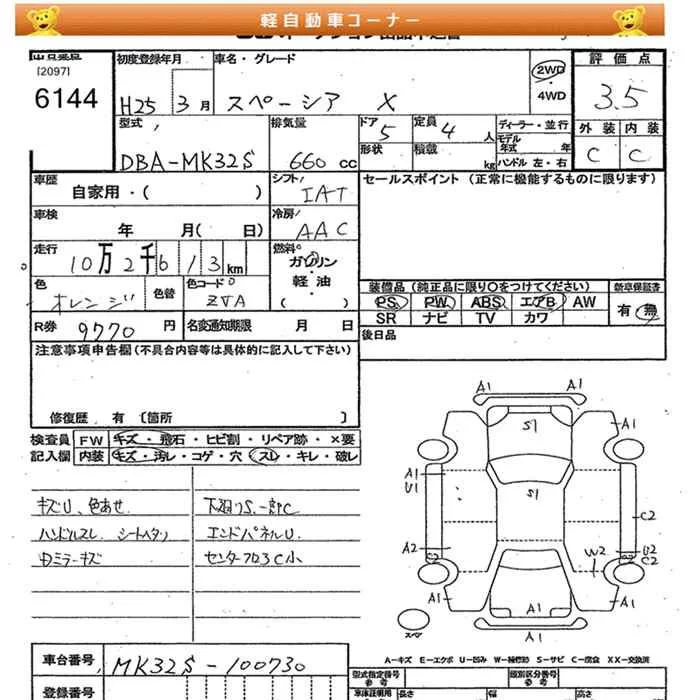 軽自動車コーナー
[2097]
6144
初度登録年月
H25 3月
車名・グレード
スペーシア X
2WD
・4WD
評価点
3.5
外装 内装
C C
型式
DBA-MK32S
排気量
660 cc
ドア 5
形状
定員 4 人
積載 kg
ディーラー・並行
モデル年式 年
ハンドル 左・右
車歴
自家用・( )
シフト
IAT
セールスポイント (正常に機能するものに限ります)
車検
年 月( 日)
冷房
AAC
走行
10万2千613km
燃料
ガソリン
・軽油
・( )
色
オレンジ
色替
色コード
ZVA
装備品 (純正品に限り○をつけてください)
PS PW ABS エアB AW
SR ナビ TV カワ
新車保証書
有・無
R券 9770 円
名変通知期限 月 日
後日品
注意事項申告欄(不具合内容等は具体的に記入して下さい)
修復歴 有 〔箇所 〕
検査員記入欄
FW キズ・飛石・ヒビ割・リペア跡・×要
内装 キズ・汚レ・コゲ・穴・スレ・キレ・破レ
キズU、色あせ
ハンドルスレ シートヘタリ
Rミラーキズ
下廻りS、一部C
エンドパネルU
センターフロアC小
A1 A1
S1
A1
A1
U1
S1
C2
A2
C2
W2
U2
C2
C2
A1
A1
A1
スペア
A-キズ E-エクボ U-凹ミ W-補修跡 S-サビ C-腐食 XX-交換済
車台番号
MK32S-100730
登録番号
型式指定番号
参考
類別区分番号
参考
車体証明用
長さ 幅 高さ